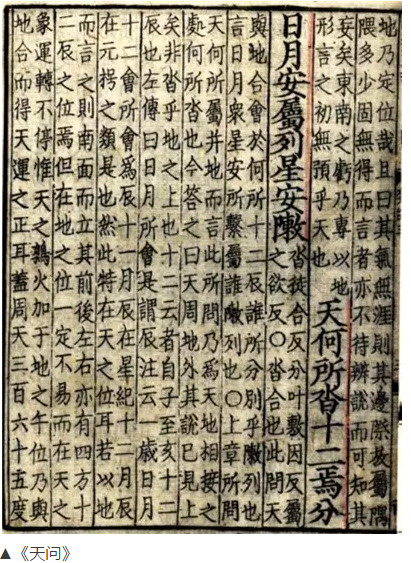 地乃定位哉且曰其氣無涯則其邊際放屬隅
隈多少固無得而言者亦不待辨說而可知其
妄矣東南之虧乃專以地
形言之初無預乎天也
天何所沓十二焉分
日月安屬列星安敶
沓徒合反分叶敷因反屬
之欲反○沓合也此問天
與地合會於何所十二辰誰所分別乎敶列也
言日月衆星安所繫屬誰敶列也○上章所問
天何所屬并地而言此所問乃爲天地相接之
處何所沓也今答之曰天周地外其說已見上
矣非沓乎地之上也十二云者自子至亥十二
辰也左傳曰日月所會是謂辰注云一歲日月
十二會所會爲辰十一月辰在星紀十二月辰
在元枵之類是也然此特在天之位耳若以地
而言之則南面而立其前後左右亦有四方十
二辰之位焉但在地之位一定不易而在天之
象運轉不停惟天之鶉火加于地之午位乃與
地合而得天運之正耳蓋周天三百六十五度
▲《天问》